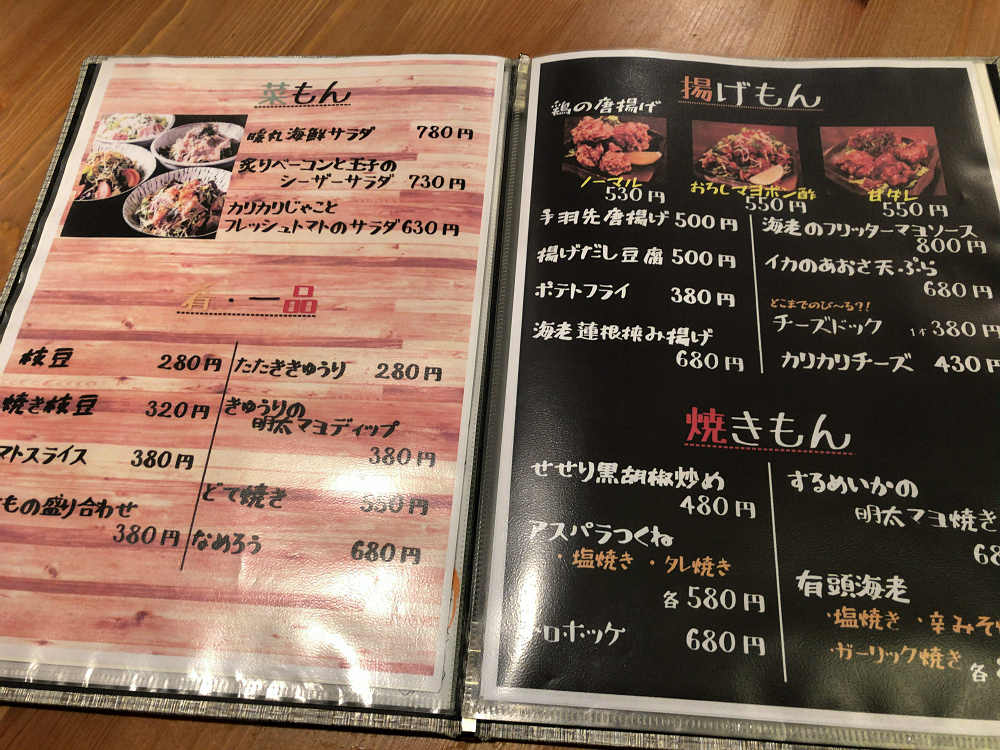 菜もん
暖丸海鮮サラダ 780円
炙りベーコンと玉子の
シーザーサラダ 730円
カリカリじゃこと
フレッシュトマトのサラダ 630円
肴・一品
枝豆 280円
焼き枝豆 320円
マトスライス 380円
もの盛り合わせ
380円
たたききゅうり 280円
きゅうりの
明太マヨディップ
380円
どて焼き 550円
なめろう 680円
揚げもん
鶏の唐揚げ
ノーマル
530円
おろしマヨポン酢
550円
甘ダレ
550円
手羽先唐揚げ 500円
揚げだし豆腐 500円
ポテトフライ 380円
海老蓮根挟み揚げ
680円
海老のフリッターマヨソース
800円
イカのあおさ天ぷら
680円
どこまでのび〜る?!
チーズドック 1本 380円
カリカリチーズ 430円
焼きもん
せせり黒胡椒炒め
480円
アスパラつくね
・塩焼き ・タレ焼き
各 580円
ロホッケ 680円
するめいかの
明太マヨ焼き
有頭海老
・塩焼き ・辛みそ
・ガーリック焼き
各